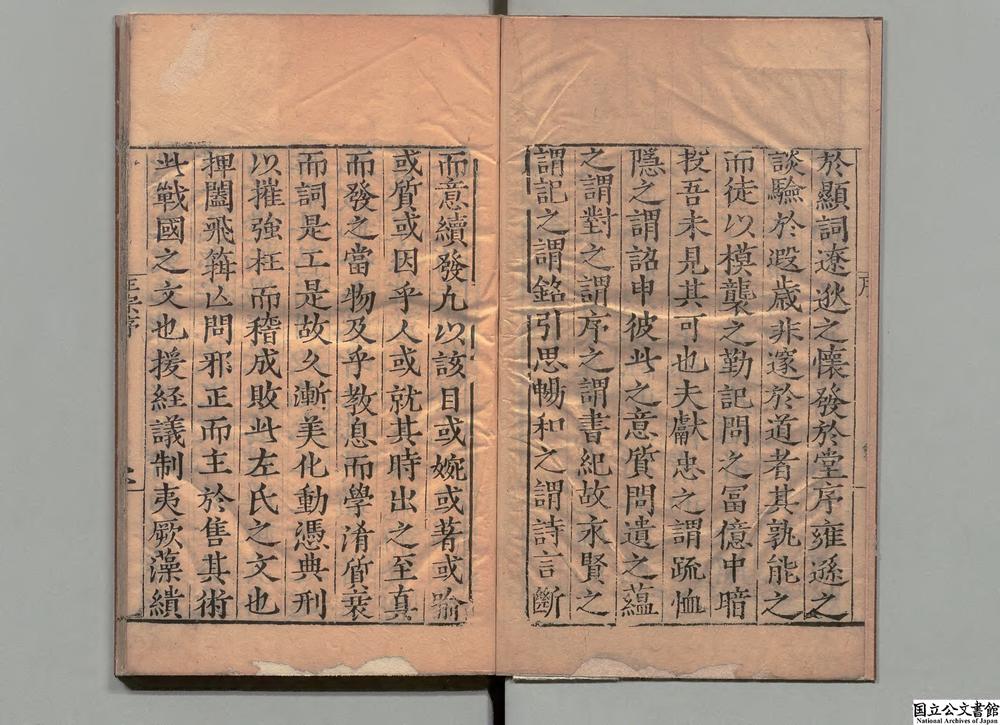 於顯詞遼逖之懷發於堂序雍遜之
談驗於遐歲非邃於道者其孰能之
而徒以模襲之勤記問之冨億中暗
投吾未見其可也夫獻忠之謂䟽恤
隱之謂詔申彼此之意質問遺之蘊
之謂對之謂序之謂書紀故永賢之
謂記之謂銘引思暢和之謂詩言斷
而意續發凢以該目或婉或著或喻
或質或因乎人或就其時出之至真
而發之當物及乎教息而學淆質衰
而詞是工是故久漸羙化動憑典刑
以摧強枉而稽成敗此左氏之文也
捭闔飛箝㐫問邪正而主於售其術
此戰國之文也援経議制夷厥藻繢
国立公文書館
National Archives of Japan